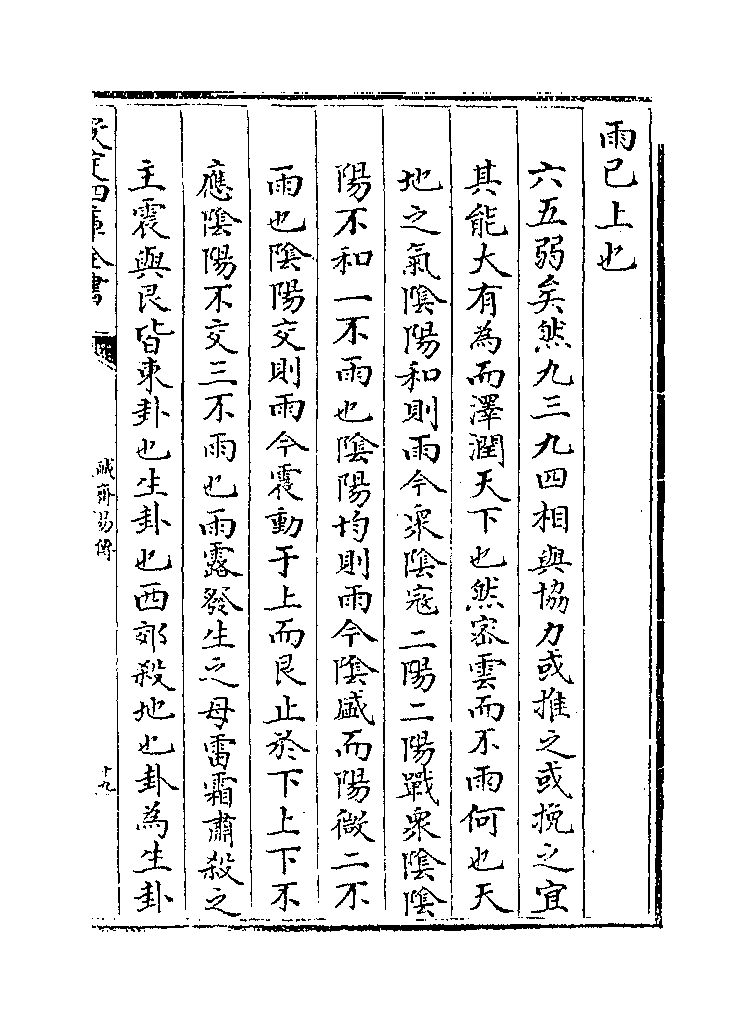 雨已上也
六五弱矣然九三九四相與協力或推之或挽之宜
其能大有為而澤潤天下也然宻雲而不雨何也天
地之氣隂陽和則雨今衆隂寇二陽二陽戰衆隂隂
陽不和一不雨也隂陽均則雨今隂盛而陽微二不
雨也隂陽交則雨今震動于上而艮止於下上下不
應隂陽不交三不雨也雨露發生之母雷霜肅殺之
主震與艮皆東卦也生卦也西郊殺地也卦為生卦
欽定四庫全書
誠齋易傳
十九